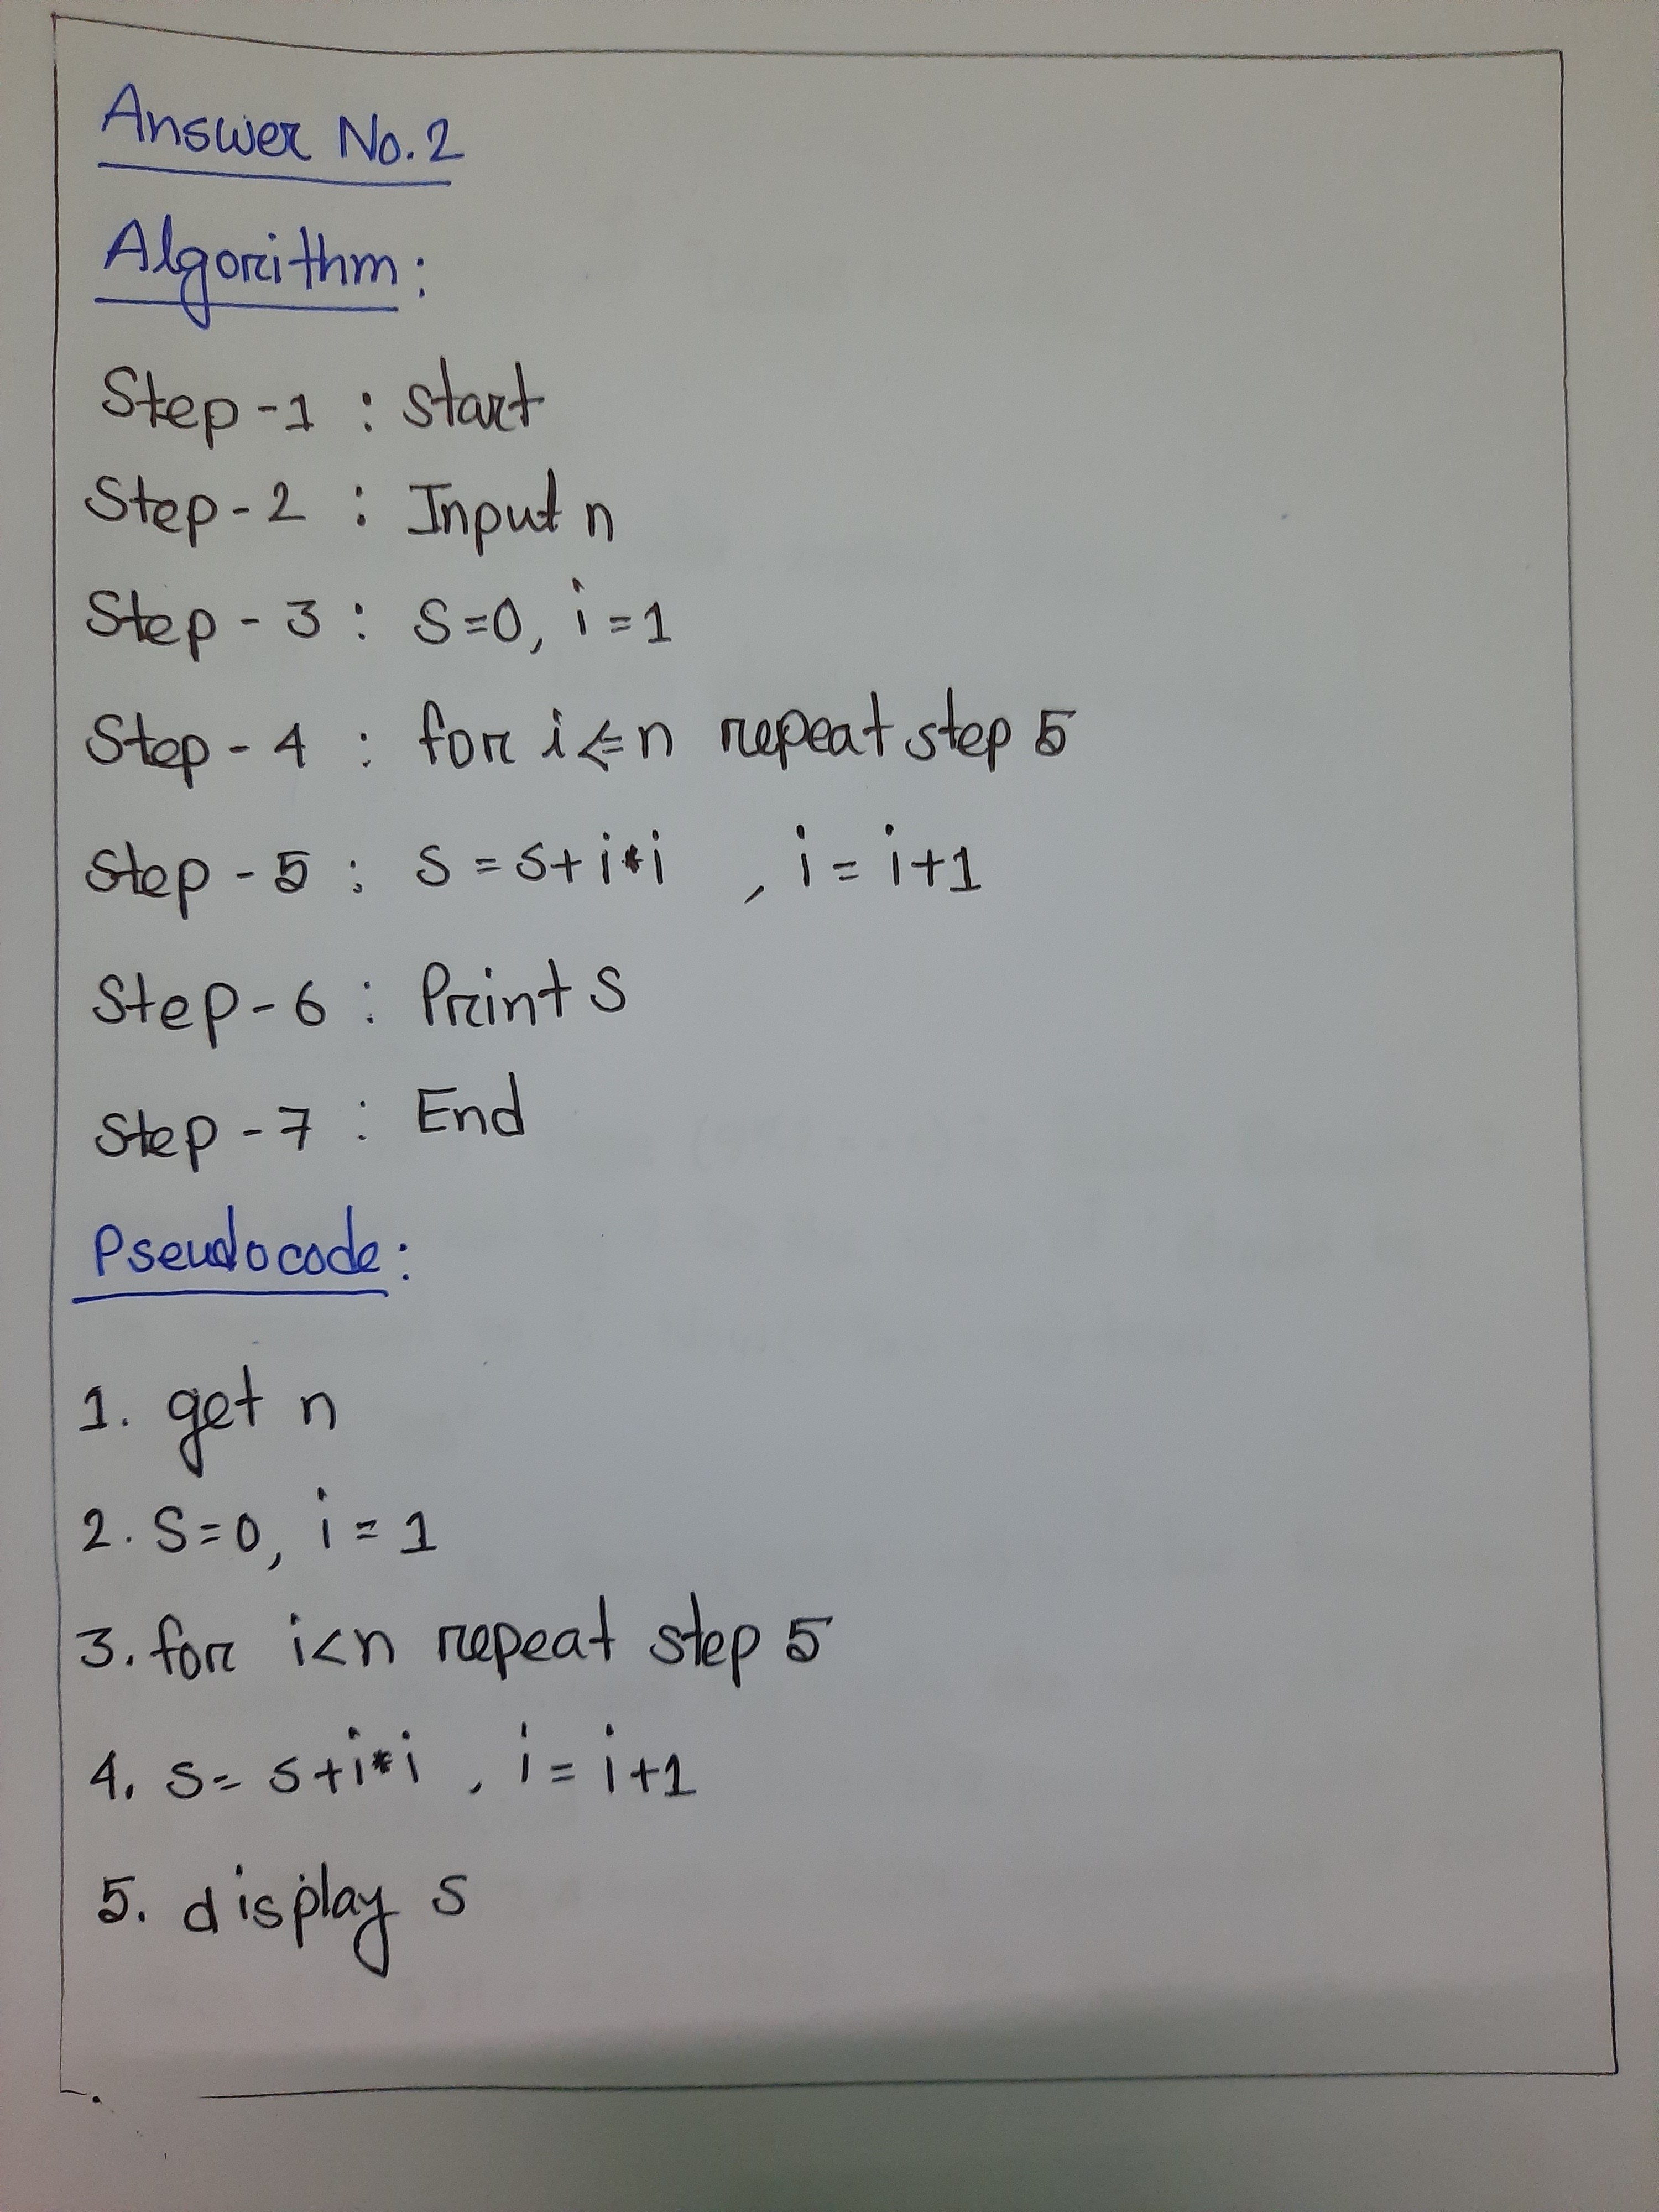 Answer No.2
Algorithm:
Step-1 : Start
Step-2 : Input n
Step-3 : S=0, i=1
Step-4 : for i<=n repeat step 5
Step-5 : S=S+i*i , i=i+1
Step-6 : Print S
Step-7 : End
Pseudocode:
1. get n
2. S=0, i=1
3. for i<n repeat step 5
4. S=S+i*i , i=i+1
5. display S